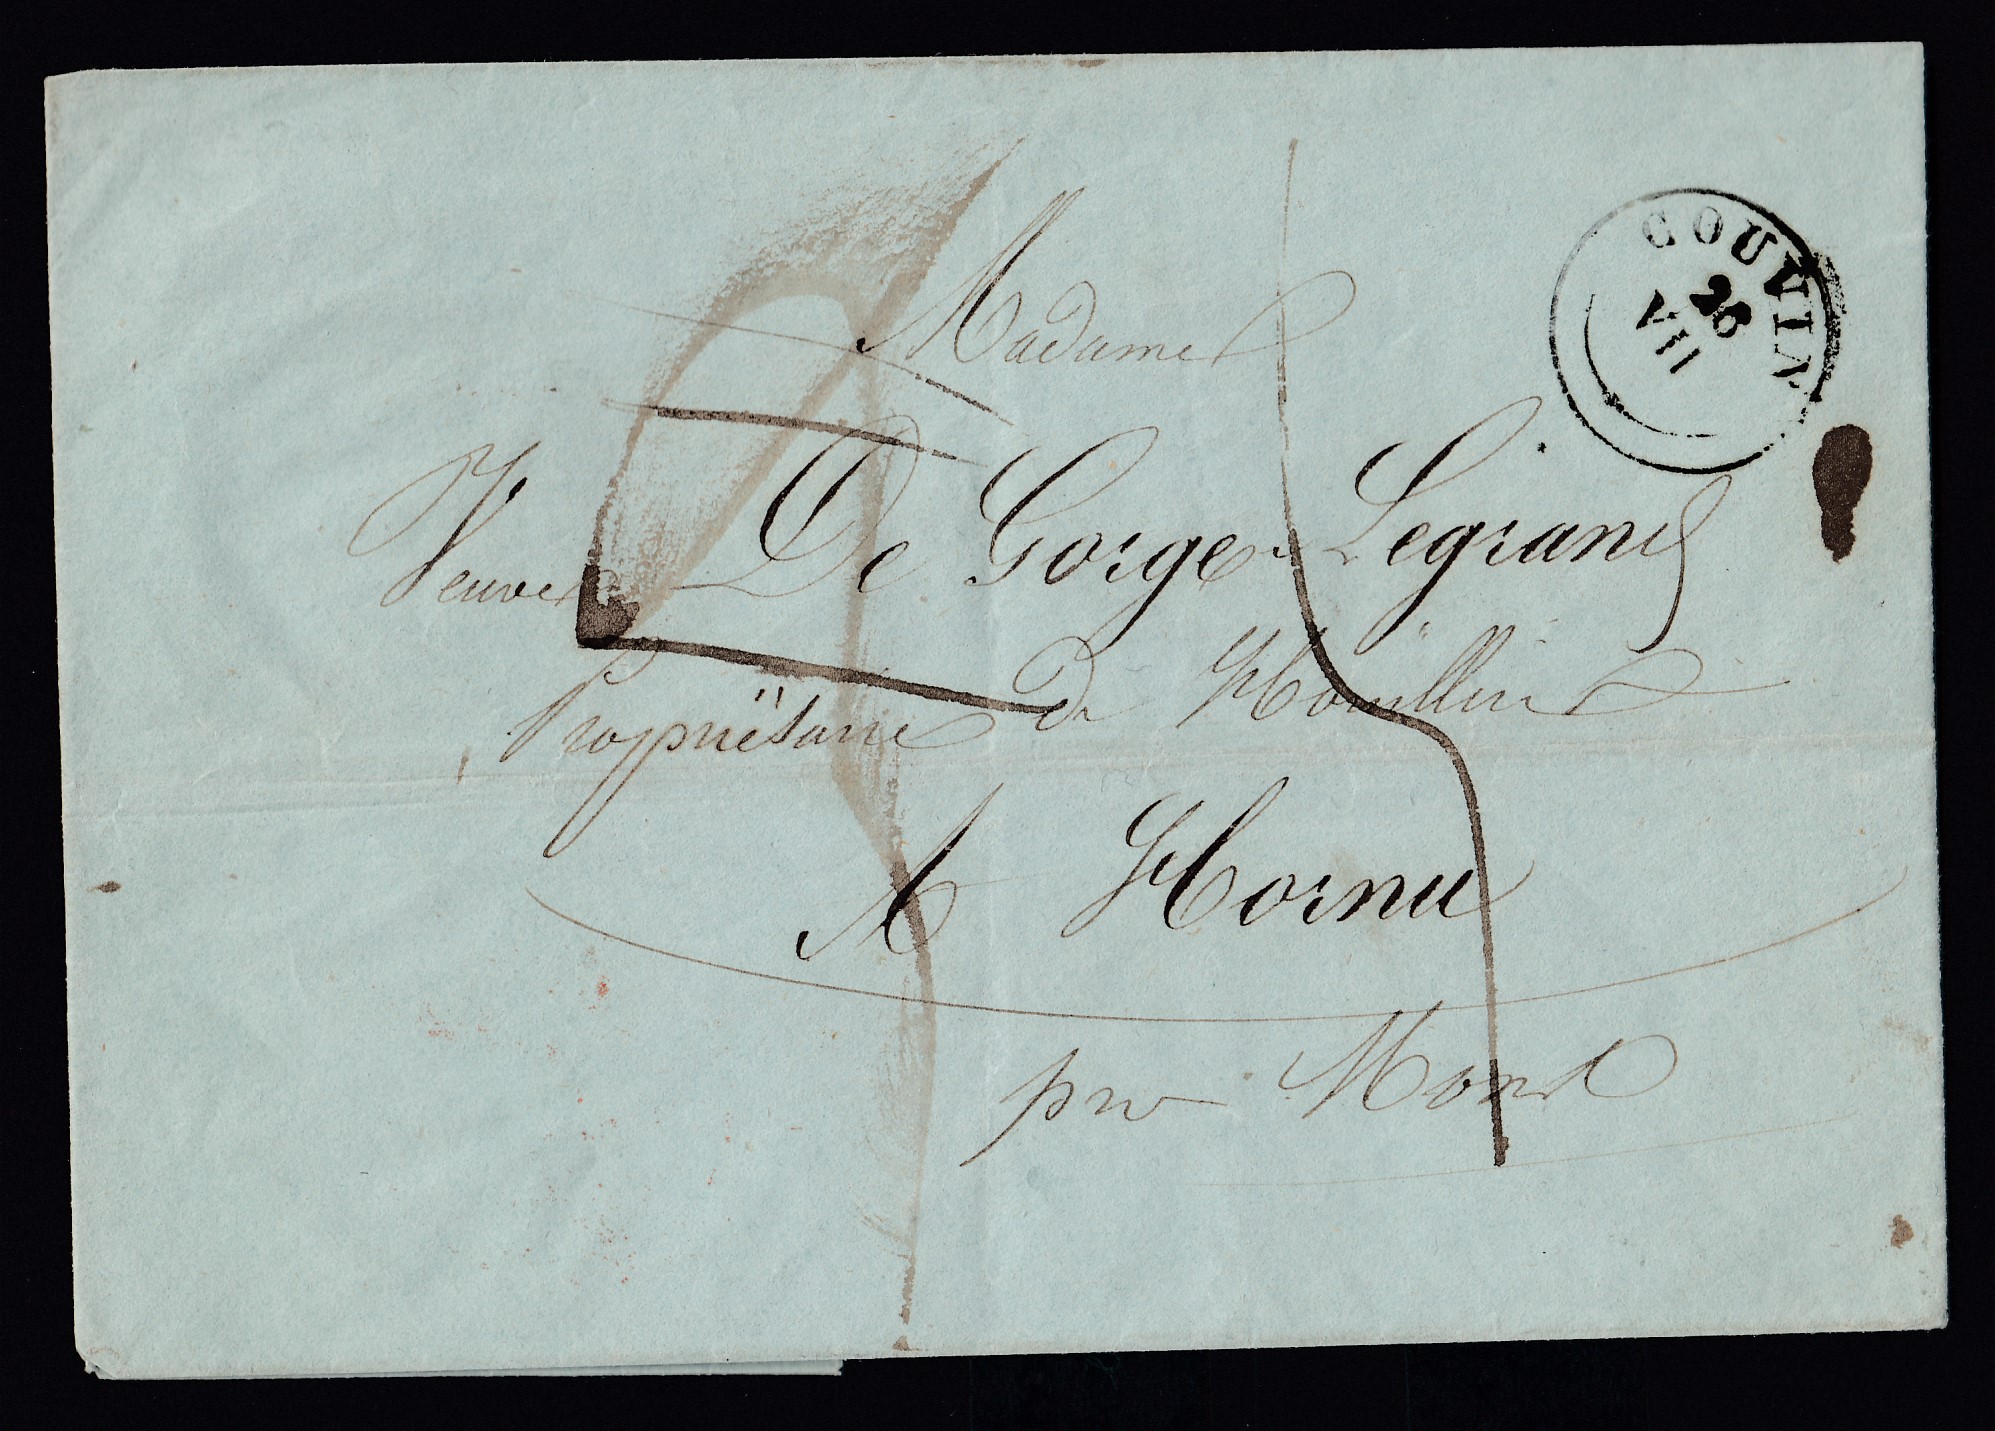 COUVIN
26
VII
Madame
Veuve De Gorge-Legrand
Propriétaire de Houillere
A Hornu
pres Mons